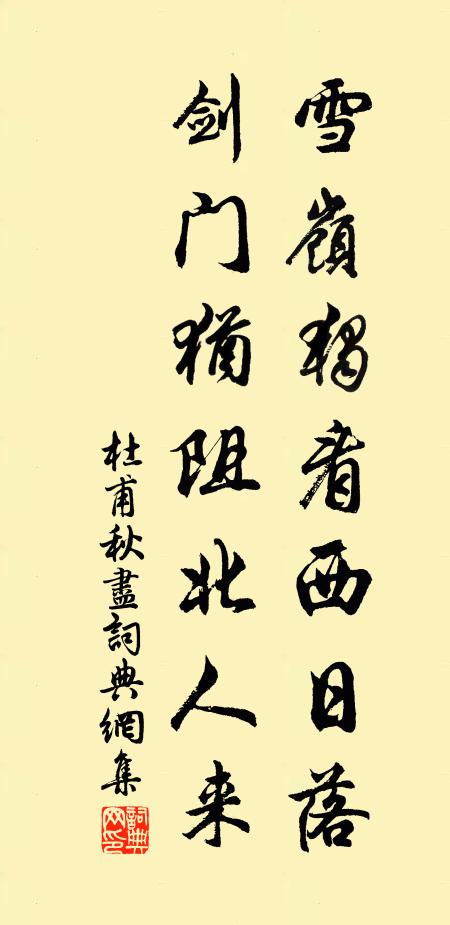 雪嶺獨看西日落
剑门猶阻北人来
杜甫秋盡詞典網集
詞典网印